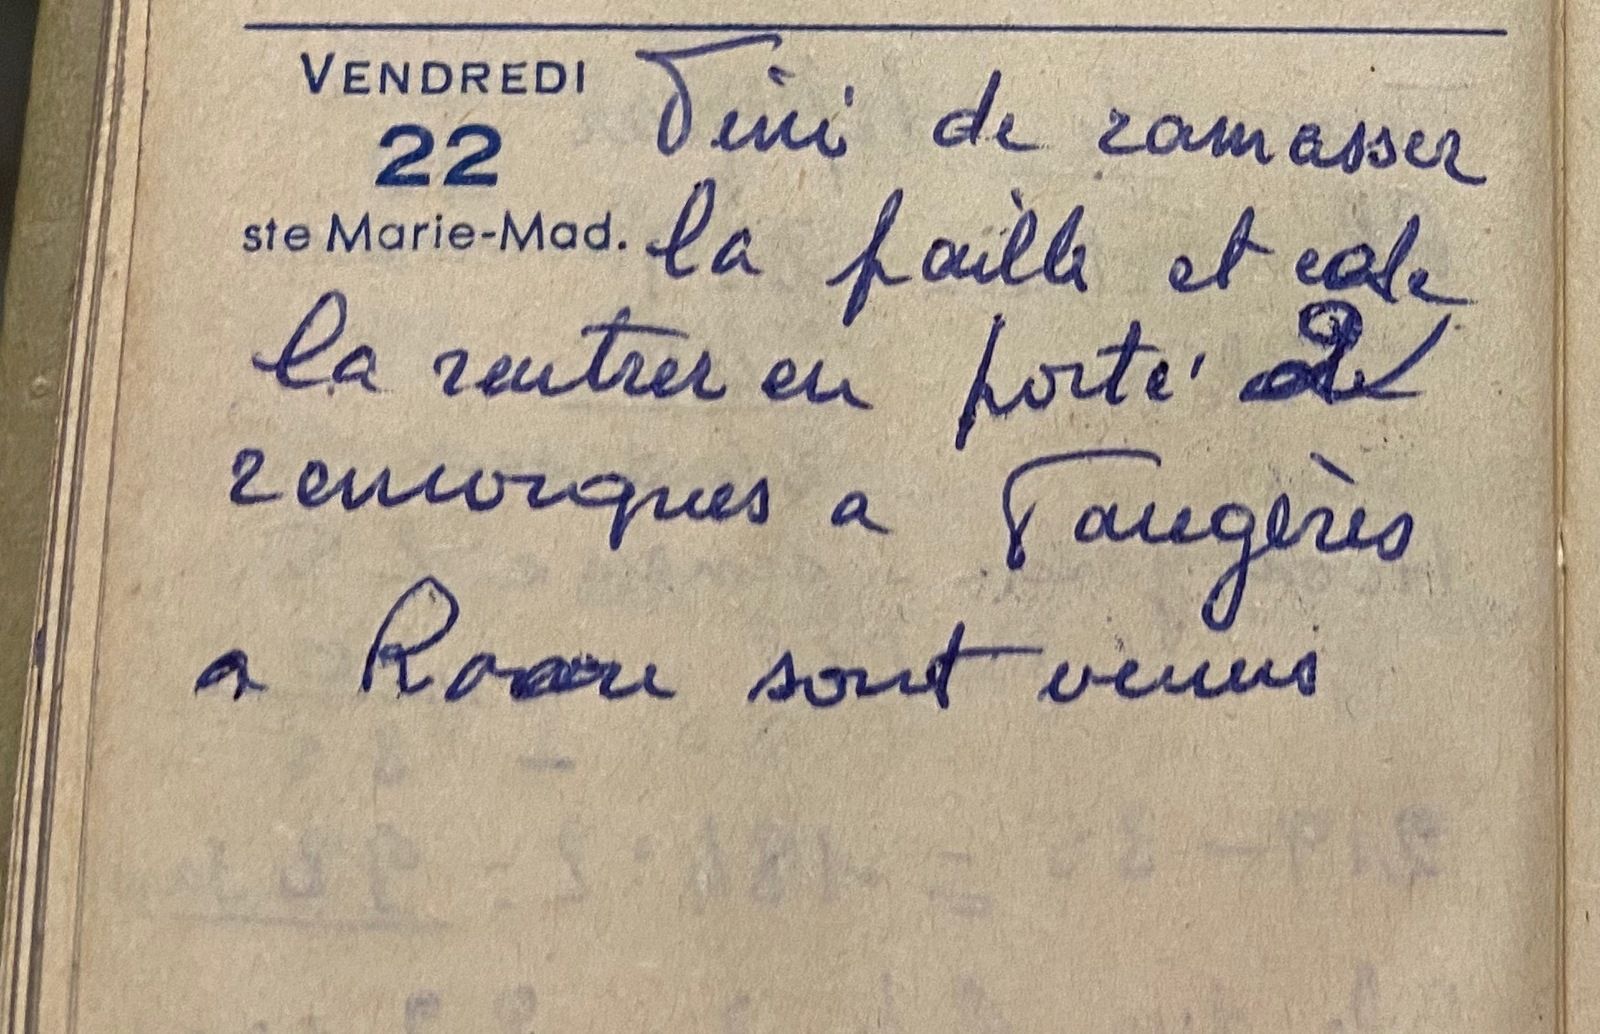 VENDREDI Fini de ramasser
22
ste Marie-Mad. la paille et de
la rentrer en porté 2
remorques a Faugères
a sont venus